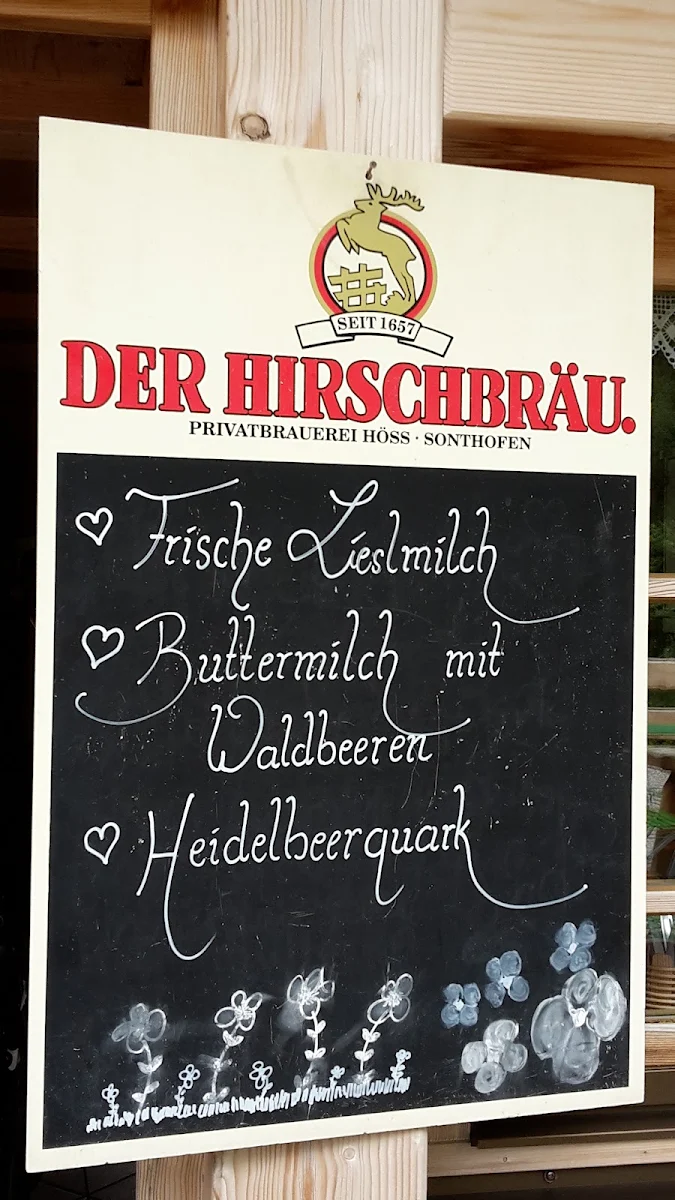 SEIT 1657
DER HIRSCHBRÄU.
PRIVATBRAUEREI HÖSS · SONTHOFEN
Frische Lieslmilch
Buttermilch mit
Waldbeeren
Heidelbeerquark